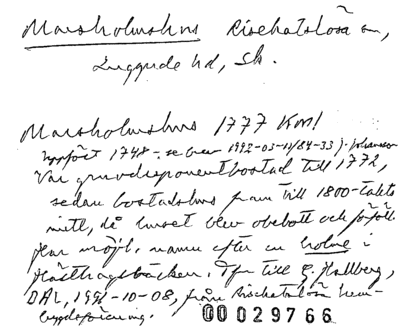 Marsholmshus Risekatslösa sn,
Luggude hd, Sk.
Marsholmshus 1777 KM!
uppfört 1748 - se brev 1992-03-11/84-33) J. Johansson
Var gruvdisponentbostad till 1772,
sedan bostadshus fram till 1800-talets
mitt, då huset blev obebott och förföll.
Har möjl. namn efter en holme i
Hästhagsbäcken. Tfn till G. Hallberg,
DAL, 1992-10-08, från Risekatslösa hem-
bygdsförening.
00029766